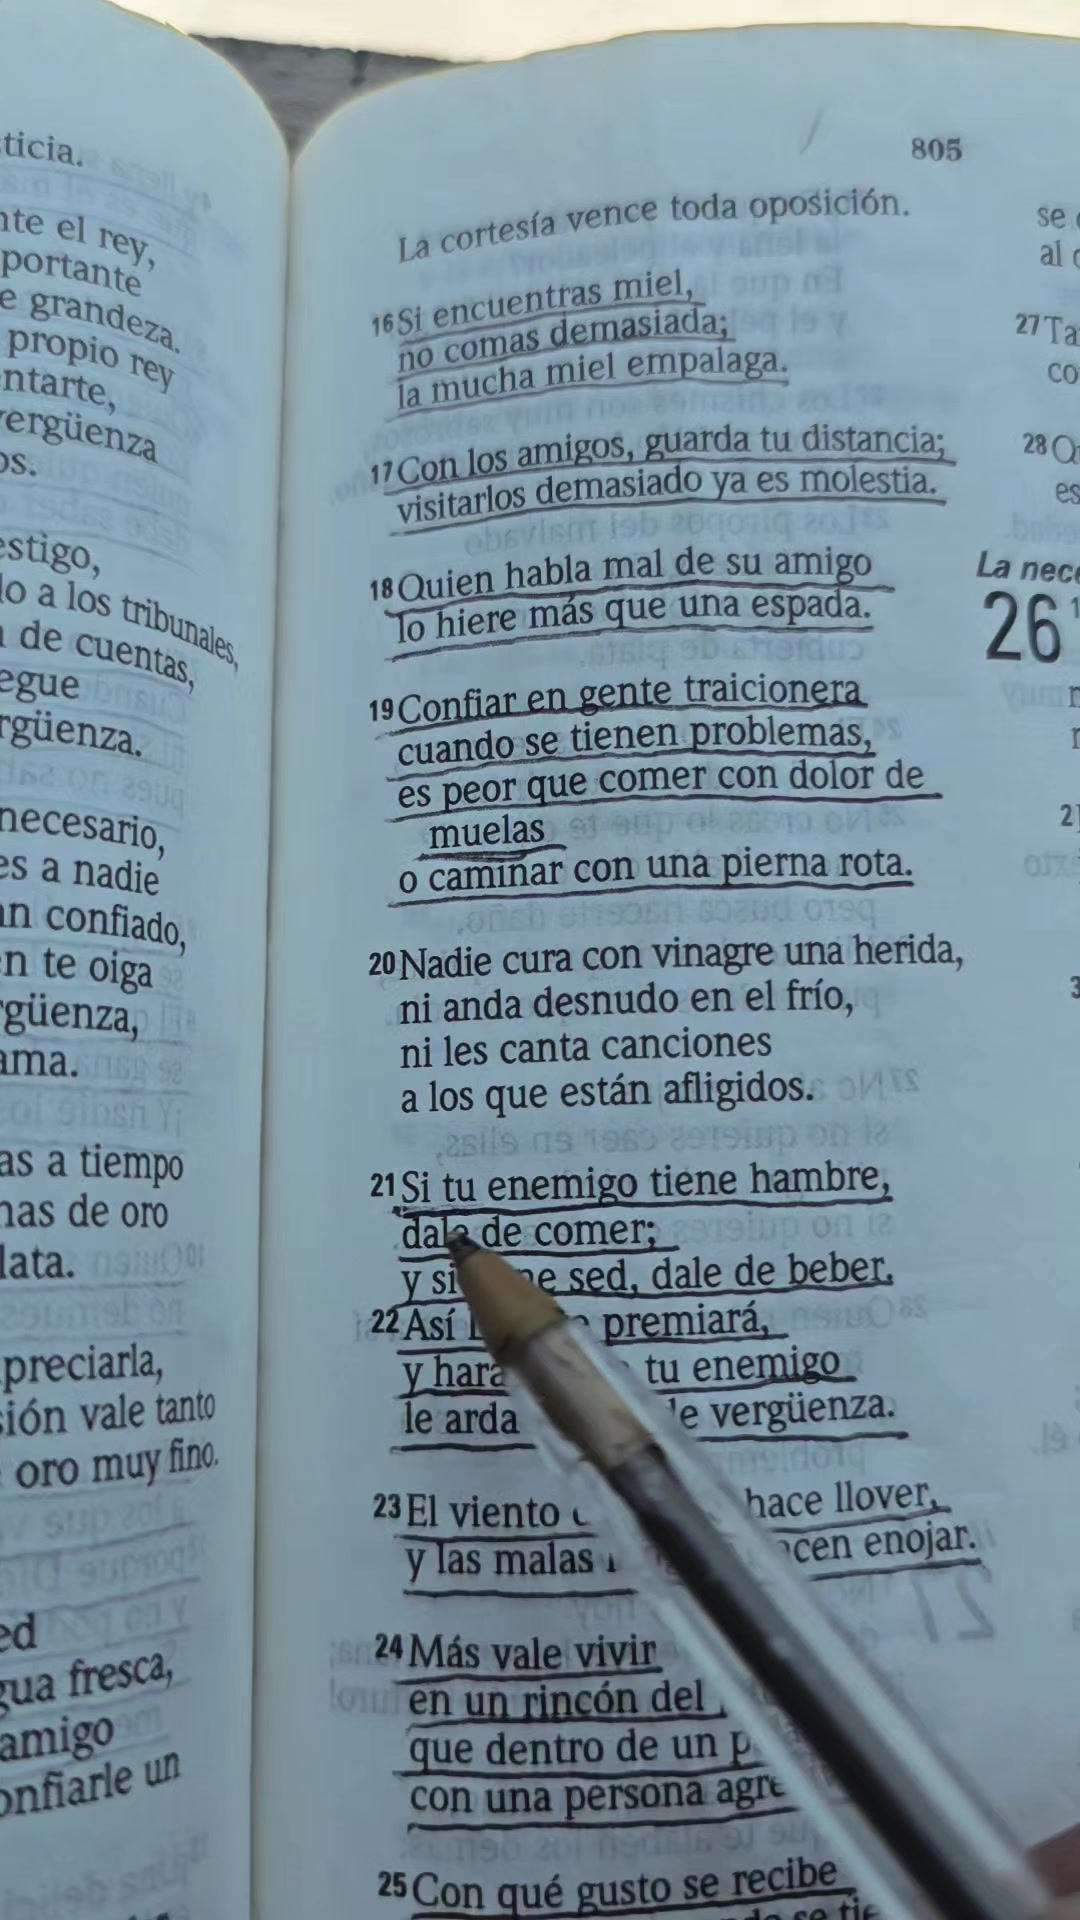 ticia.
nte el rey,
portante
e grandeza.
propio rey
ntarte,
vergüenza
os.
estigo,
lo a los tribunales,
de cuentas,
egue
rgüenza.
necesario,
es a nadie
an confiado,
en te oiga
rgüenza,
ama.
as a tiempo
nas de oro
lata.
preciarla,
sión vale tanto
oro muy fino.
ed
gua fresca,
amigo
onfiarle un
805
La cortesía vence toda oposición.
16 Si encuentras miel,
no comas demasiada;
la mucha miel empalaga.
17 Con los amigos, guarda tu distancia;
visitarlos demasiado ya es molestia.
18 Quien habla mal de su amigo
lo hiere más que una espada.
19 Confiar en gente traicionera
cuando se tienen problemas,
es peor que comer con dolor de
muelas
o caminar con una pierna rota.
20 Nadie cura con vinagre una herida,
ni anda desnudo en el frío,
ni les canta canciones
a los que están afligidos.
21 Si tu enemigo tiene hambre,
dale de comer;
y si ne sed, dale de beber.
22 Así premiará,
y hará tu enemigo
le arda de vergüenza.
23 El viento hace llover,
y las malas acen enojar.
24 Más vale vivir
en un rincón del
que dentro de un p
con una persona agre
25 Con qué gusto se recibe
se
al
27 Ta
co
28 Q
es
La nece
26
2
3